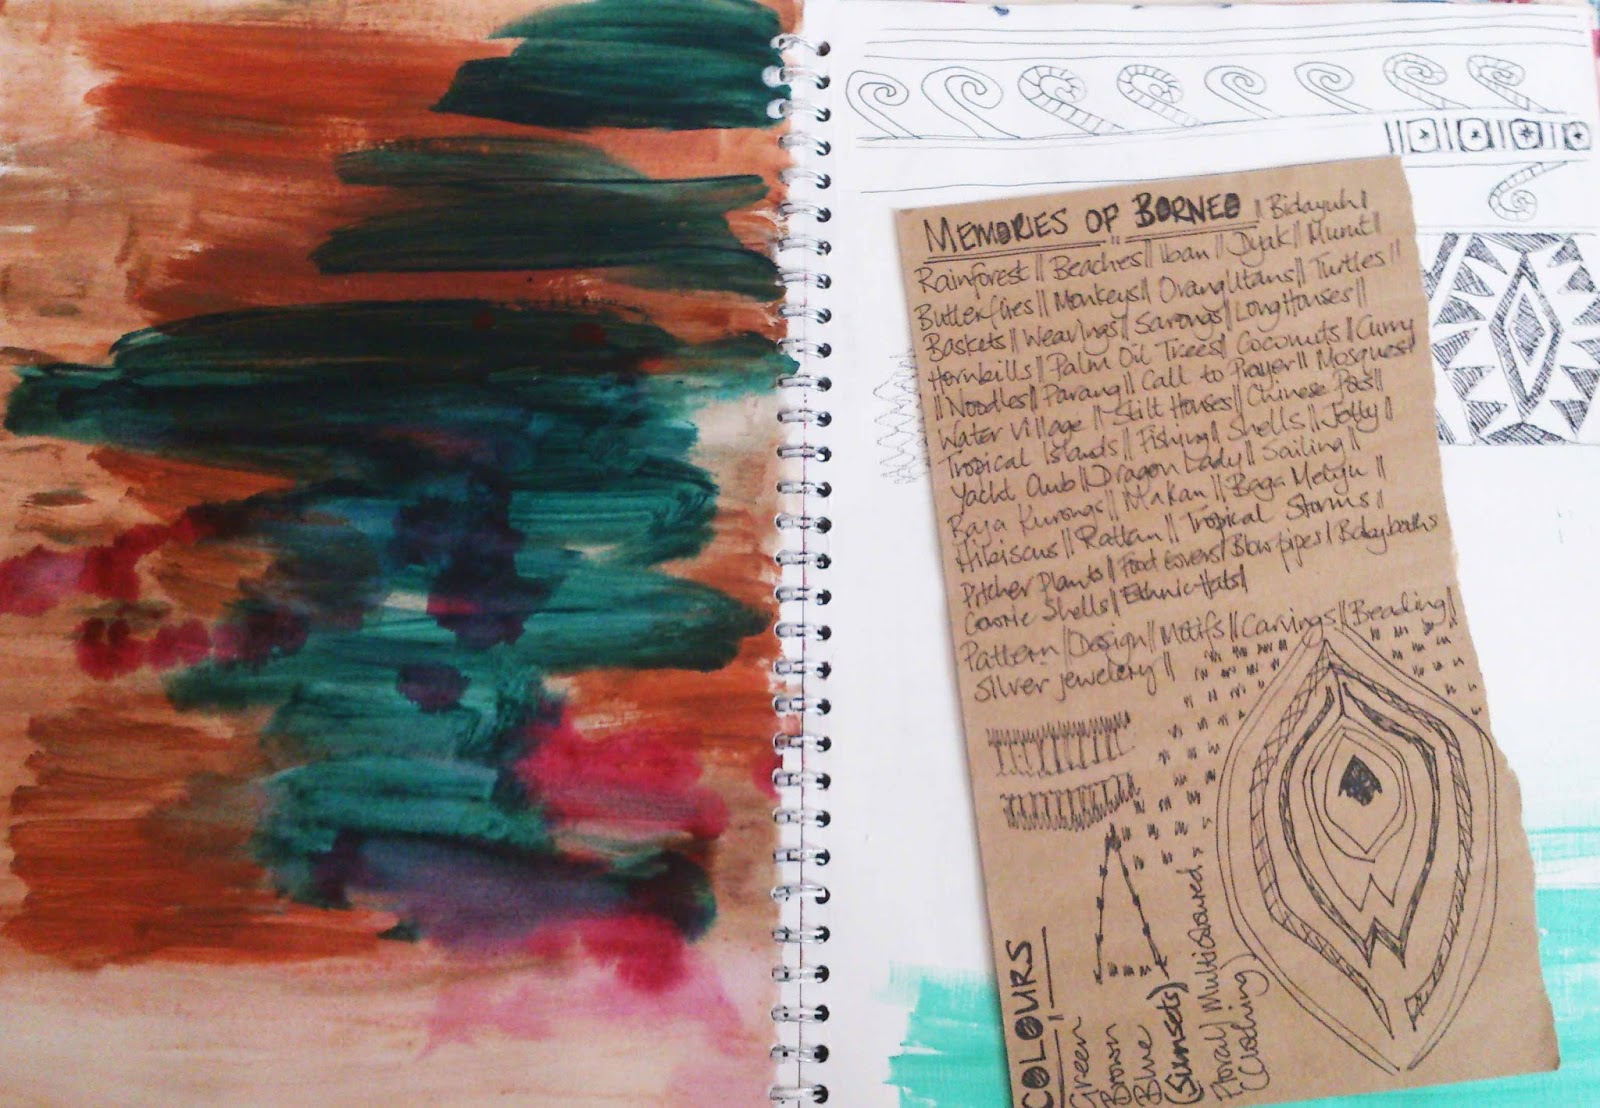 MEMORIES OF BORNEO || Bidayuh |
Rainforest || Beaches || Iban || Dyak || Murut ||
Butterflies || Monkeys || Orang Utans || Turtles ||
Baskets || Weavings || Sarongs || Long Houses ||
Hornbills || Palm Oil Trees | Coconuts || Curry
|| Noodles || Parang || Call to Prayer || Mosques ||
Water Village || Stilt Houses || Chinese Pots ||
Tropical Islands || Fishing || Shells || Jetty ||
Yacht Club || Dragon Lady || Sailing ||
Baja Kurongs || Makan || Baga Melayu ||
Hibiscus || Rattan || Tropical Storms ||
Pitcher Plants || Food Covers | Blow pipes |
Cowrie Shells || Ethnic Hats ||
Pattern | Design || Motifs || Carvings || Beading |
Silver Jewelery ||
COLOURS
Green
Brown
Blue
(Sunsets)
Floral / Multicoloured
(Clothing)